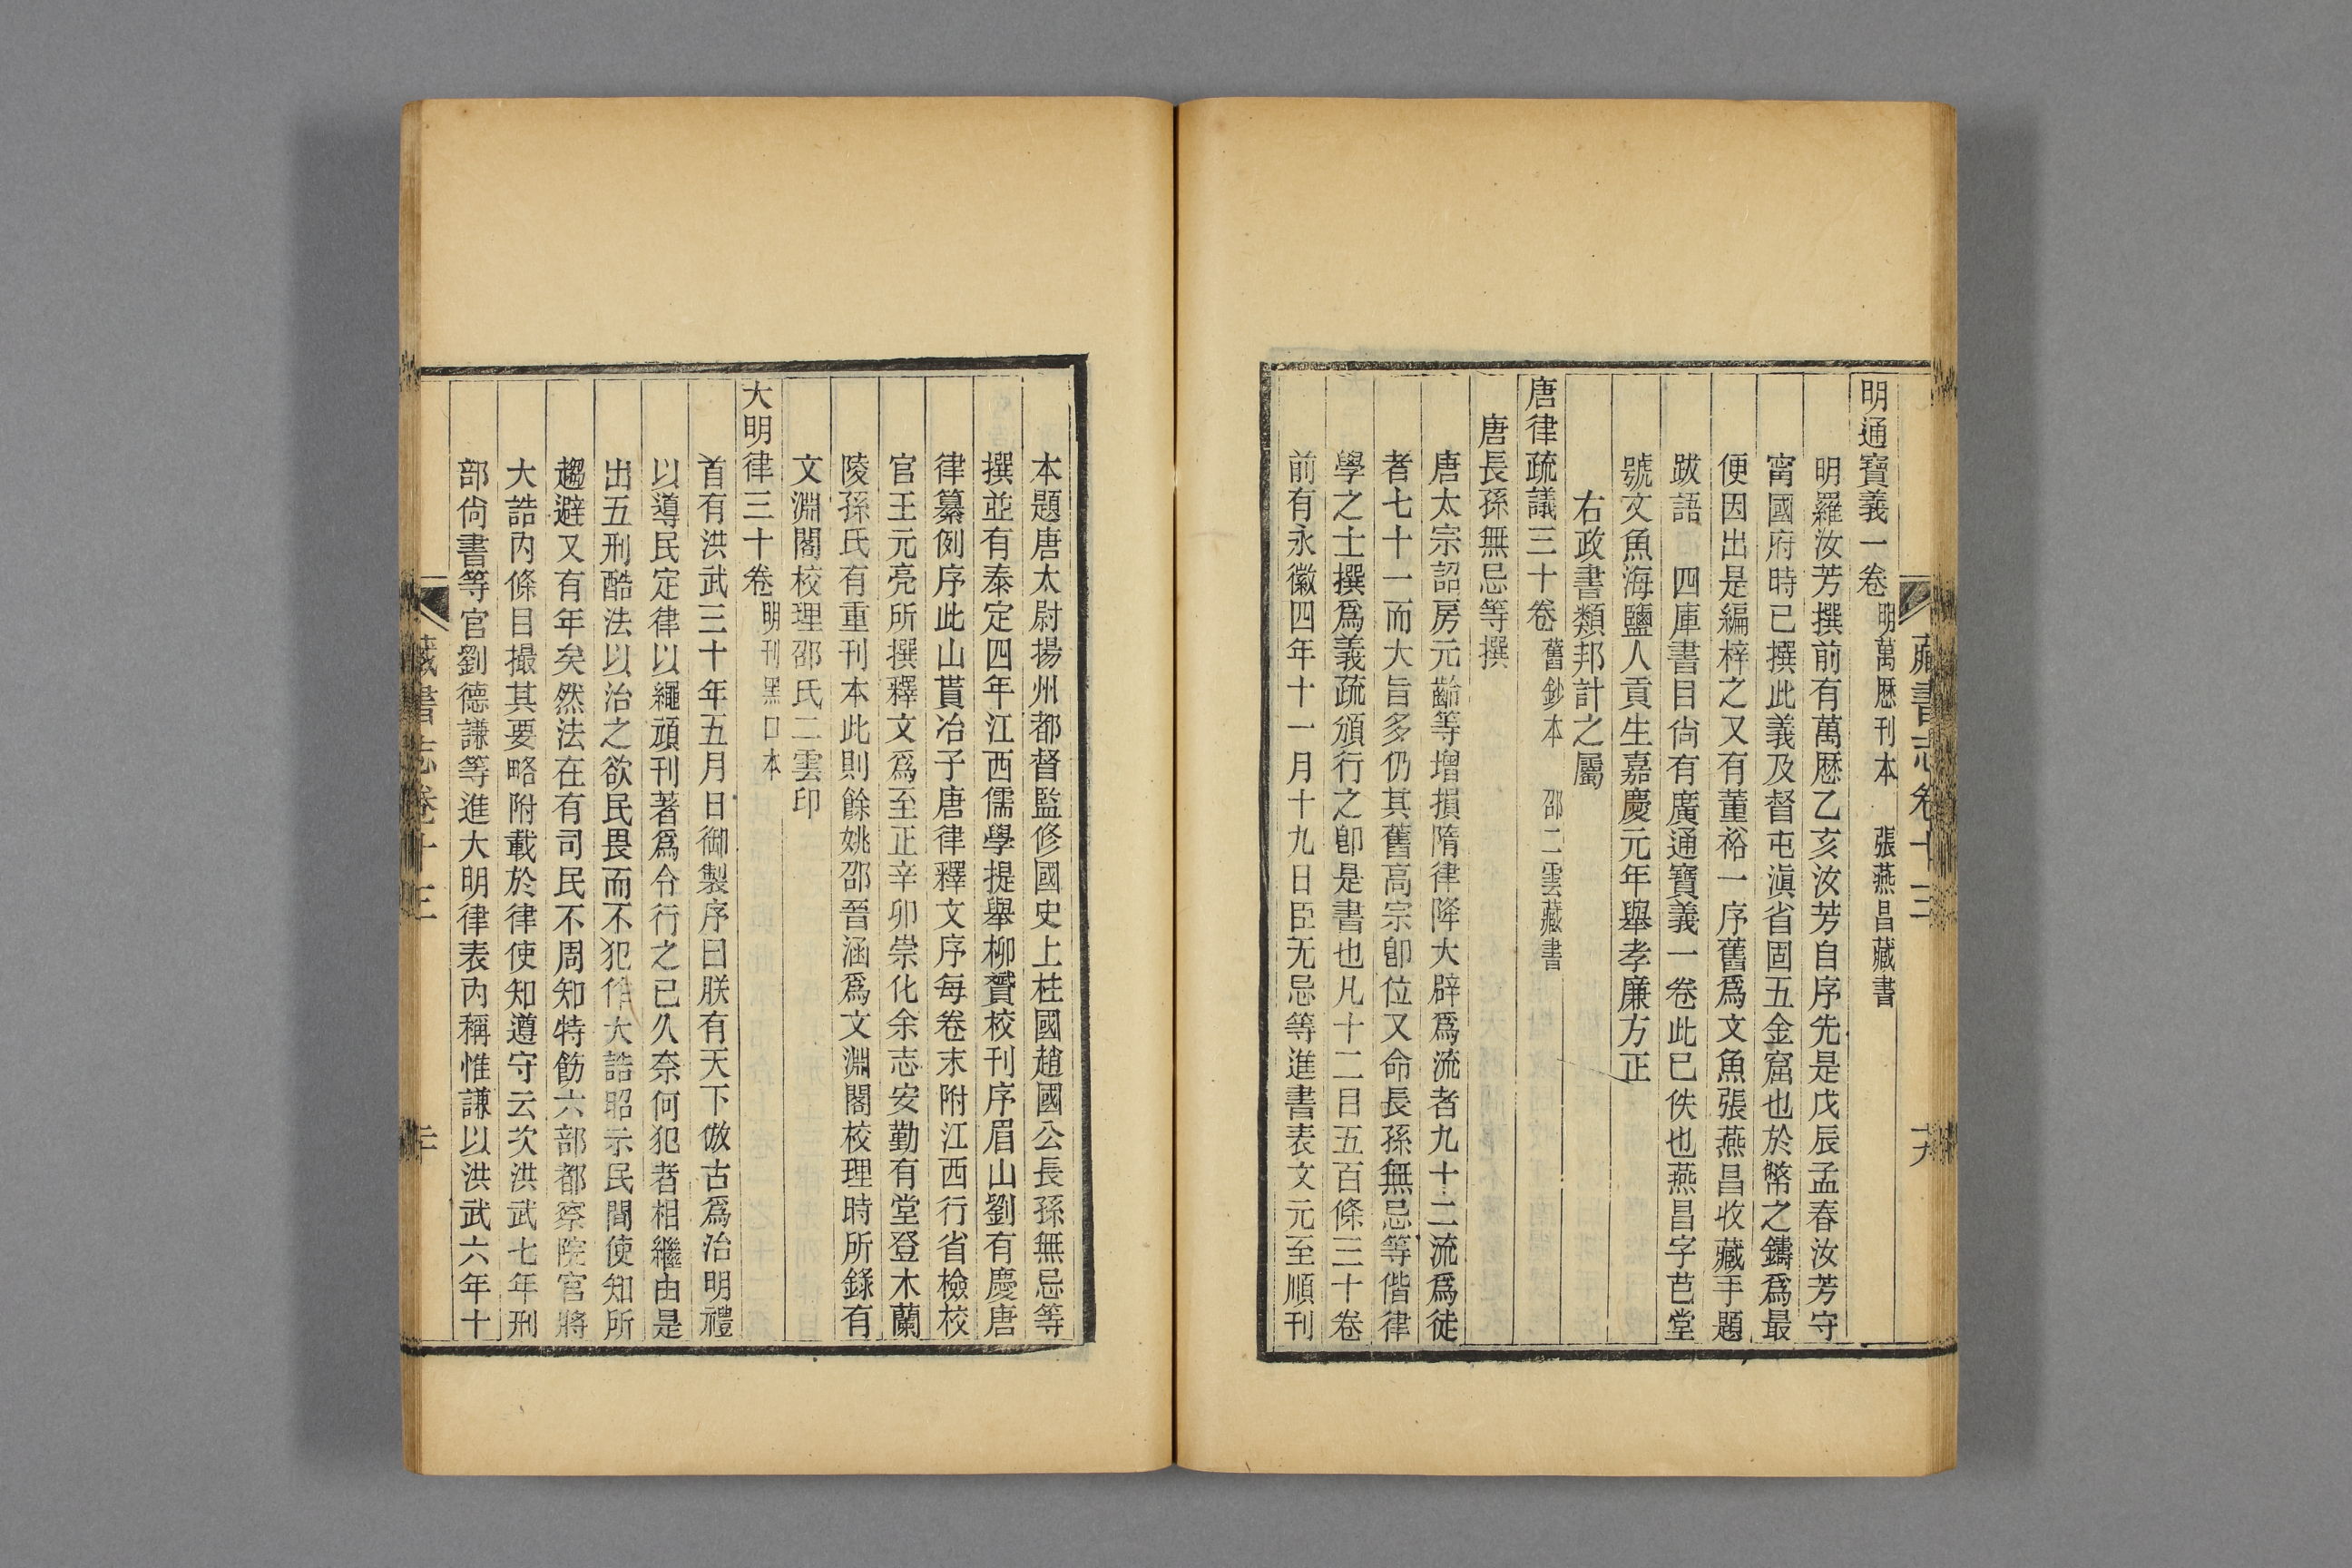 藏書志卷十三
明通寶義一卷 明萬歴刊本 張燕昌藏書
明羅汝芳撰前有萬歴乙亥汝芳自序先是戊辰孟春汝芳守
甯國府時已撰此義及督屯滇省固五金窟也於幣之鑄爲最
便因出是編梓之又有董裕一序舊爲文魚張燕昌收藏手題
跋語 四庫書目尙有廣通寶義一卷此已佚也燕昌字芑堂
號文魚海鹽人貢生嘉慶元年舉孝廉方正
右政書類邦計之屬
唐律疏議三十卷 舊鈔本 邵二雲藏書
唐長孫無忌等撰
唐太宗詔房元齡等增損隋律降大辟爲流者九十二流爲徒
者七十一而大旨多仍其舊高宗卽位又命長孫無忌等偕律
學之士撰爲義疏頒行之卽是書也凡十二目五百條三十卷
前有永徽四年十一月十九日臣无忌等進書表文元至順刊
本題唐太尉揚州都督監修國史上柱國趙國公長孫無忌等
撰並有泰定四年江西儒學提舉柳贇校刊序眉山劉有慶唐
律纂例序此山貰冶子唐律釋文序每卷末附江西行省檢校
官王元亮所撰釋文爲至正辛卯崇化余志安勤有堂登木蘭
陵孫氏有重刊本此則餘姚邵晉涵爲文淵閣校理時所錄有
文淵閣校理邵氏二雲印
大明律三十卷 明刊黑口本
首有洪武三十年五月日御製序曰朕有天下倣古爲治明禮
以導民定律以繩頑刊著爲令行之已久奈何犯者相繼由是
出五刑酷法以治之欲民畏而不犯作大誥昭示民間使知所
趨避又有年矣然法在有司民不周知特飭六部都察院官將
大誥內條目撮其要略附載於律使知遵守云次洪武七年刑
部尙書等官劉德謙等進大明律表內稱惟謙以洪武六年十
藏書志卷十三